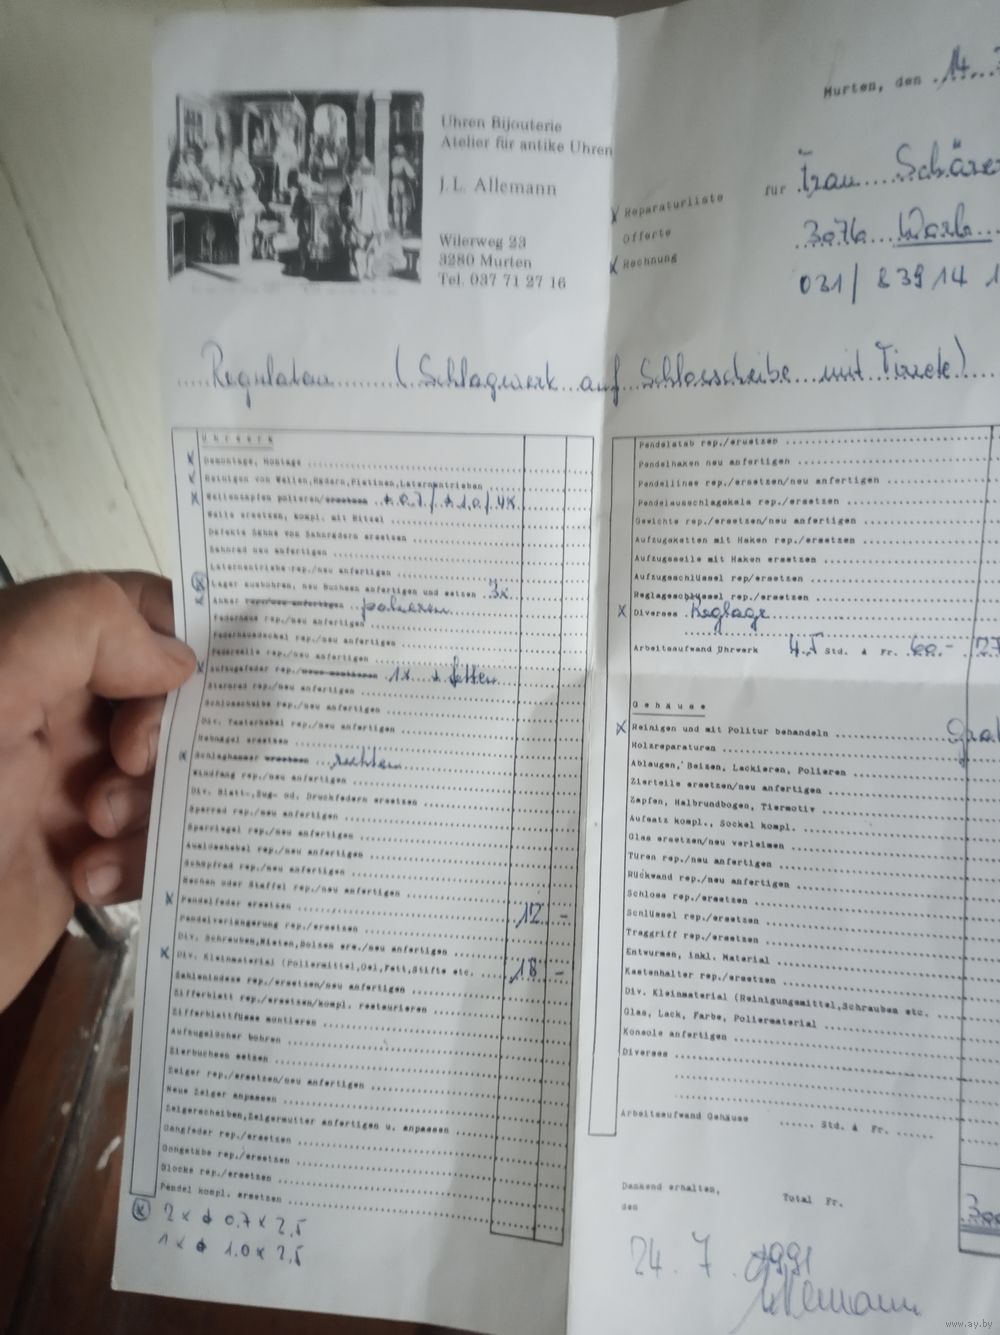 Uhren Bijouterie
Atelier für antike Uhren
J. L. Allemann
Wilerweg 23
3280 Murten
Tel. 037 71 27 16
Murten, den 14.
x Reparaturliste
Offerte
x Rechnung
für Frau Schärer
3076 Worb
031 / 839 14 1
Regulateur (Schlagwerk auf Schlossscheibe mit
Uhrwerk
x Demontage, Montage
x Reinigen von Wellen, Rädern, Platinen, Laternentrieben
x Wellenzapfen polieren/ersetzen ⌀ 0.7 / ⌀ 1.0 / 4x
Welle ersetzen, kompl. mit Ritzel
Defekte Zähne von Zahnrädern ersetzen
Zahnrad neu anfertigen
Laternentriebe rep./neu anfertigen
x Lager ausbohren, neu Buchsen anfertigen und setzen 3x
x Anker rep./neu anfertigen polieren
Federhaus rep./neu anfertigen
Federhausdeckel rep./neu anfertigen
Federwelle rep./neu anfertigen
x Aufzugsfeder rep./neue montieren 1x + fetten
Sternrad rep./neu anfertigen
Schlossscheibe rep./neu anfertigen
Div. Tasterhebel rep./neu anfertigen
Hebnagel ersetzen
x Schlaghammer ersetzen richten
Windfang rep./neu anfertigen
Div. Blatt-, Zug- od. Druckfedern ersetzen
Sperrad rep./neu anfertigen
Sperriegel rep./neu anfertigen
Auslösehebel rep./neu anfertigen
Schöpfrad rep./neu anfertigen
Rechen oder Staffel rep./neu anfertigen
x Pendelfeder ersetzen 12.-
Pendelverlängerung rep./ersetzen
Div. Schrauben, Nieten, Bolzen ers./neu anfertigen
x Div. Kleinmaterial (Poliermittel, Oel, Fett, Stifte etc. 18.-
Zahlenindexe rep./ersetzen/neu anfertigen
Zifferblatt rep./ersetzen/kompl. restaurieren
Zifferblattfüsse montieren
Aufzugslöcher bohren
Zierbuchsen setzen
Zeiger rep./ersetzen/neu anfertigen
Neue Zeiger anpassen
Zeigerscheiben, Zeigermutter anfertigen u. anpassen
Gangfeder rep./ersetzen
Gongstäbe rep./ersetzen
Glocke rep./ersetzen
Pendel kompl. ersetzen
x 2 x ⌀ 0.7 x 2,5
1 x ⌀ 1.0 x 2,5
Pendelstab rep./ersetzen
Pendelhaken neu anfertigen
Pendellinse rep./ersetzen/neu anfertigen
Pendelausschlagskala rep./ersetzen
Gewichte rep./ersetzen/neu anfertigen
Aufzugsketten mit Haken rep./ersetzen
Aufzugsseile mit Haken ersetzen
Aufzugsschlüssel rep/ersetzen
Reglageschlüssel rep./ersetzen
x Diverses Reglage
Arbeitsaufwand Uhrwerk 4.5 Std. à Fr. 60.- 27
Gehäuse
x Reinigen und mit Politur behandeln
Holzreparaturen
Ablaugen, Beizen, Lackieren, Polieren
Zierteile ersetzen/neu anfertigen
Zapfen, Halbrundbogen, Tiermotiv
Aufsatz kompl., Sockel kompl.
Glas ersetzen/neu verleimen
Türen rep./neu anfertigen
Rückwand rep./neu anfertigen
Schloss rep./ersetzen
Schlüssel rep./ersetzen
Traggriff rep./ersetzen
Entwurmen, inkl. Material
Kastenhalter rep./ersetzen
Div. Kleinmaterial (Reinigungsmittel, Schrauben etc.
Glas, Lack, Farbe, Poliermaterial
Konsole anfertigen
Diverses
Arbeitsaufwand Gehäuse ...... Std. à Fr. ......
Dankend erhalten,
den
Total Fr. 300
24. 7. 1991
Allemann
www.ay.by